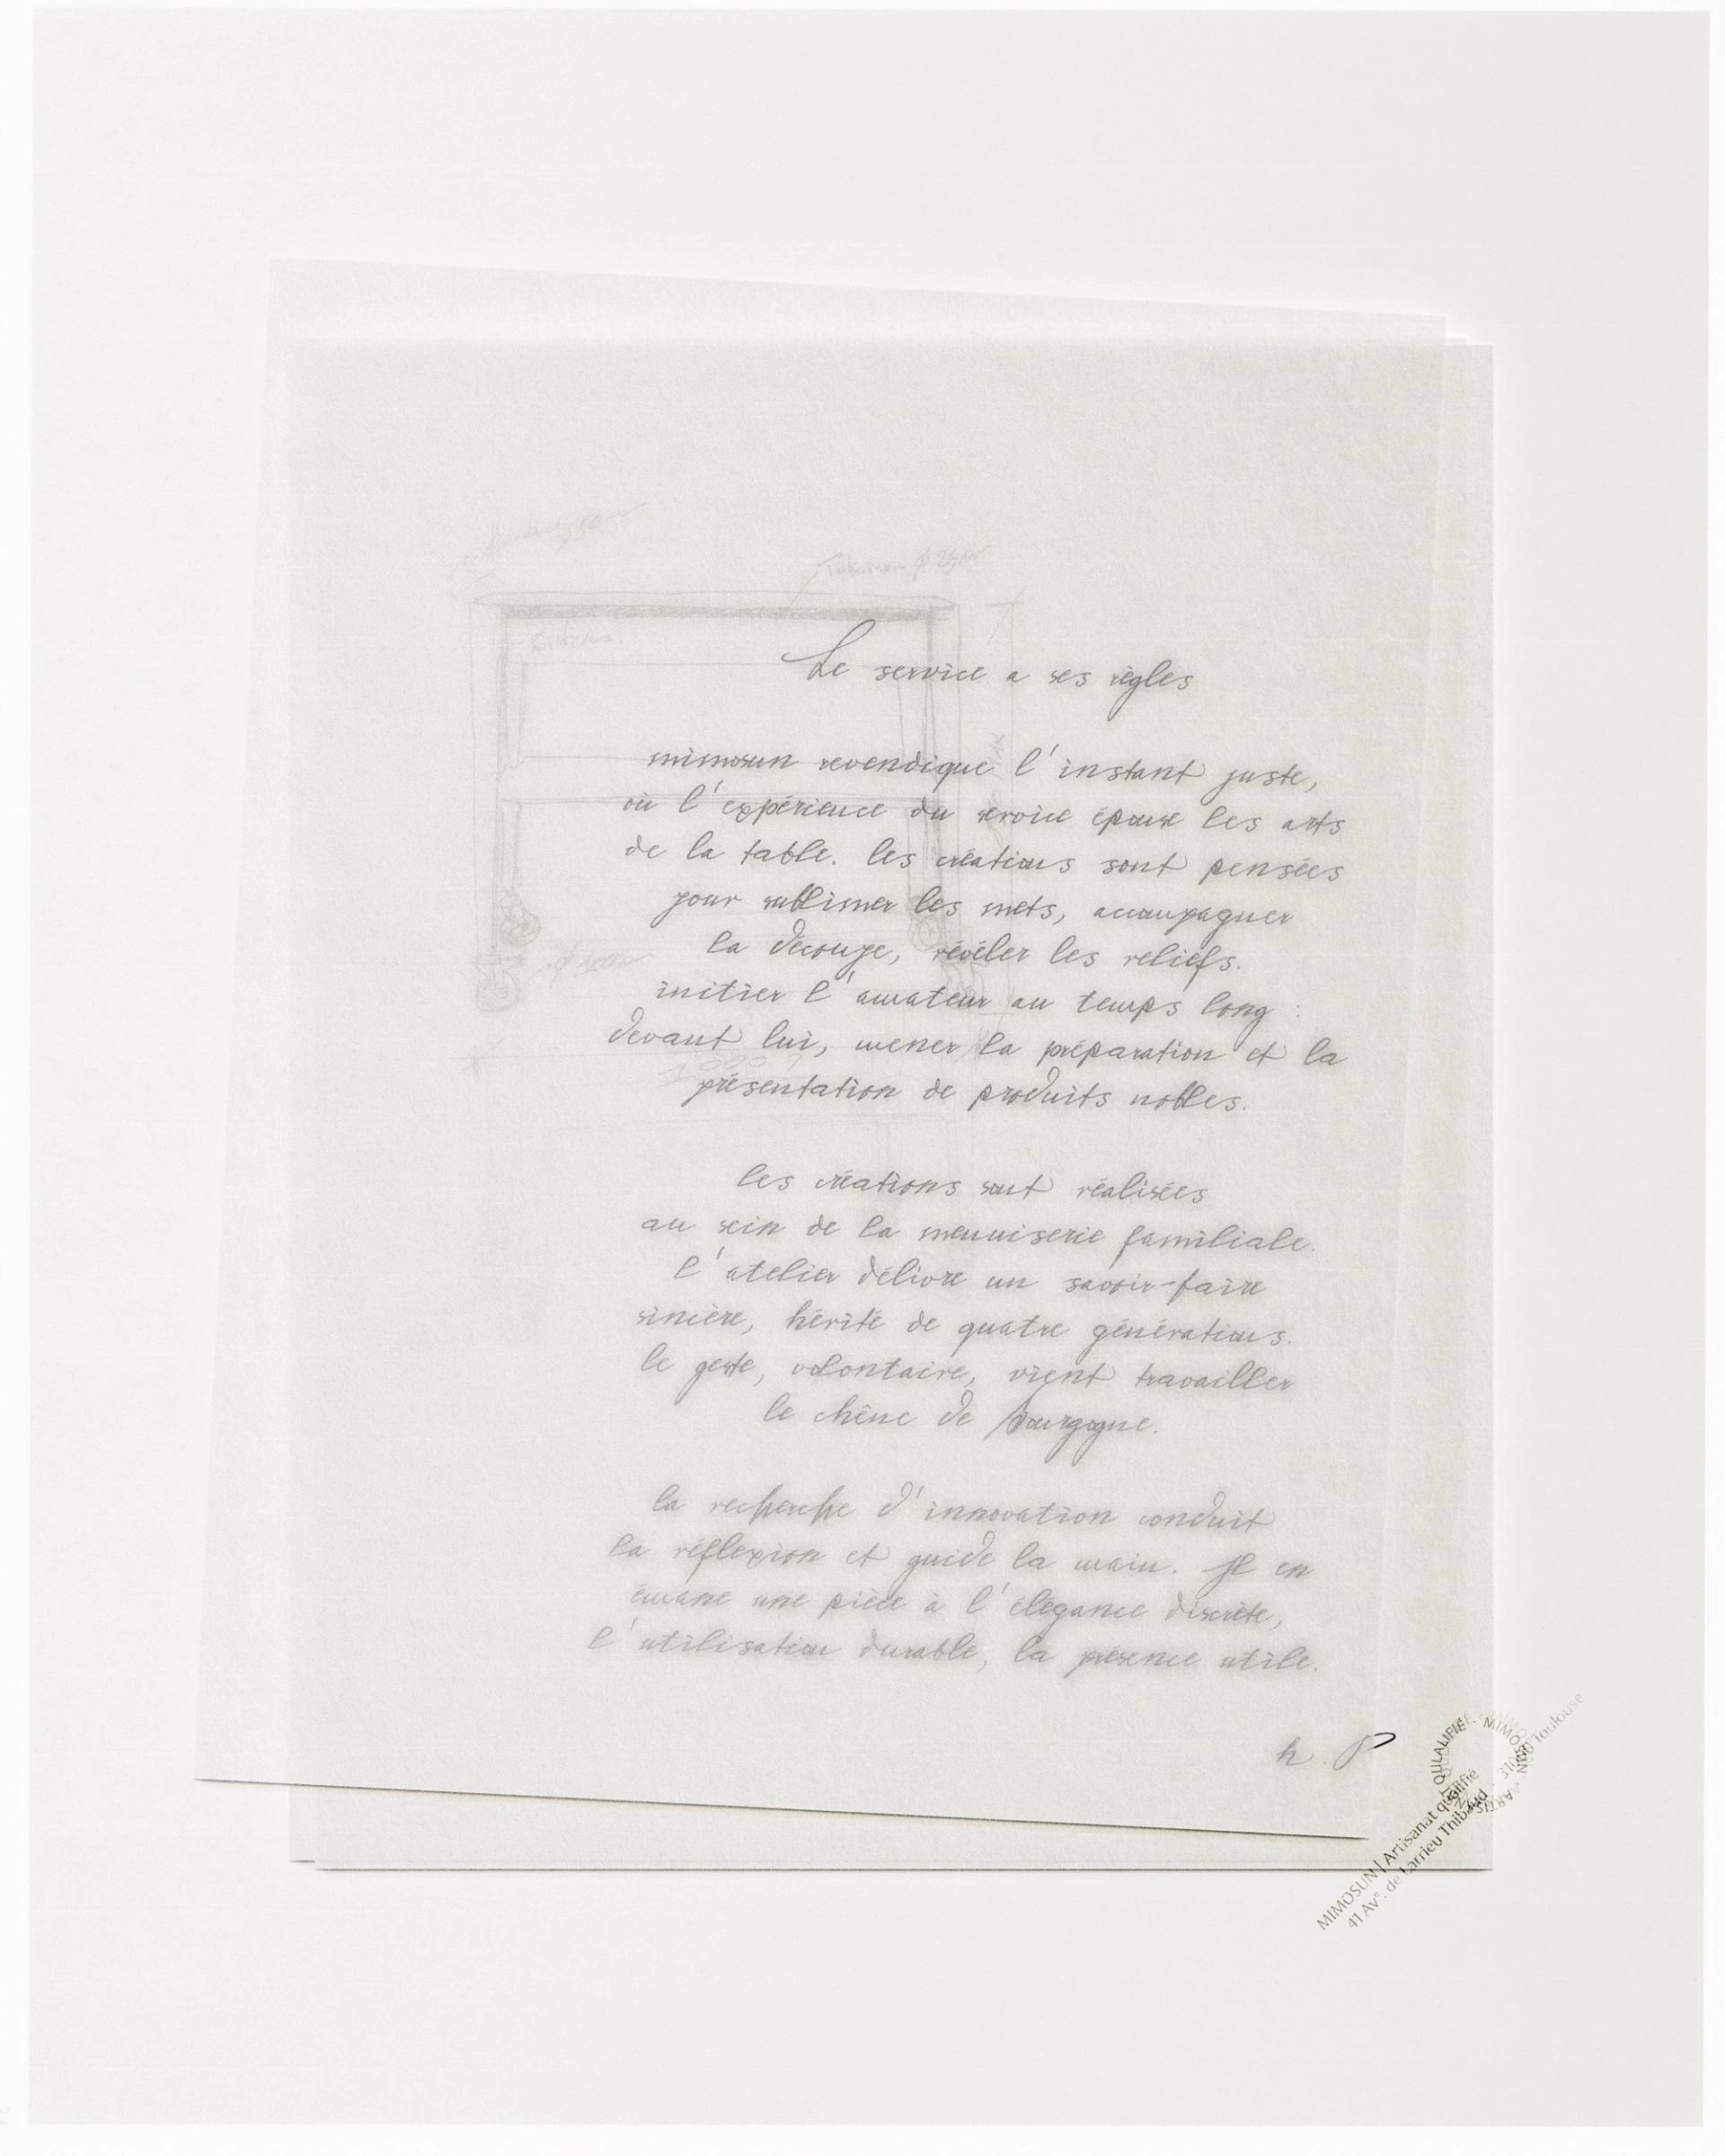 Le service a ses règles
mimosun revendique l'instant juste,
où l'expérience du service épouse les arts
de la table. les créations sont pensées
pour sublimer les mets, accompagner
la découpe, révéler les reliefs.
initier l'amateur au temps long :
devant lui, mener la préparation et la
présentation de produits nobles.
les créations sont réalisées
au sein de la menuiserie familiale.
l'atelier délivre un savoir-faire
sincère, hérité de quatre générations.
le geste, volontaire, vient travailler
le chêne de Bourgogne.
la recherche d'innovation conduit
la réflexion et guide la main. Il en
émane une pièce à l'élégance discrète,
l'utilisation durable, la présence utile.
h. P
QULALIFIÉ · MIMOSUN · ARTIS
MIMOSUN | Artisanat qualifié
41 Ave. de Larrieu Thibaud · Toulouse